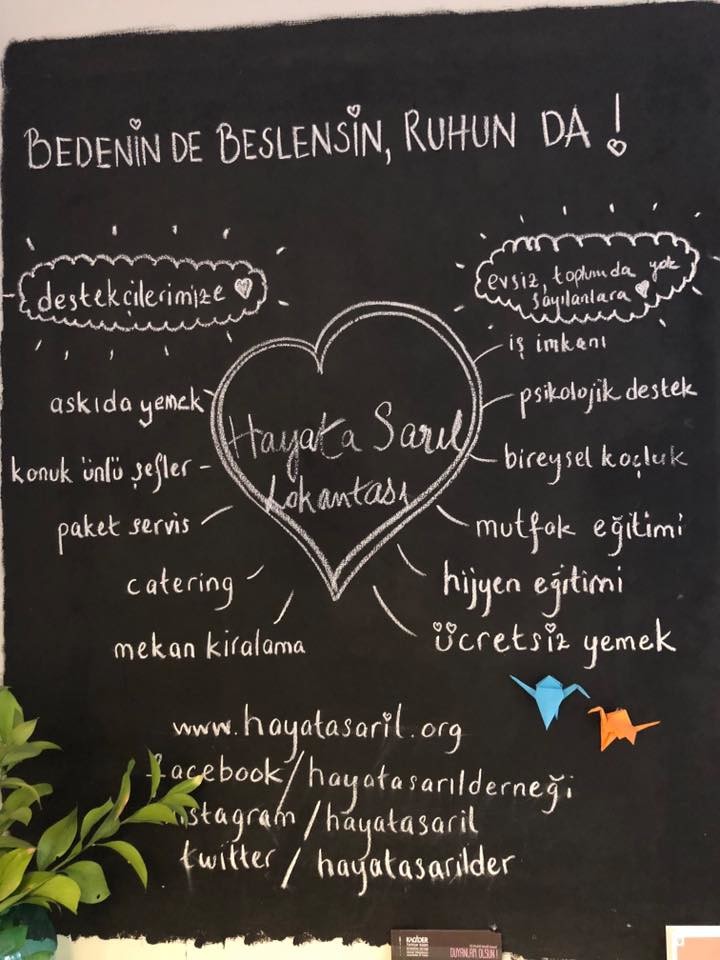 BEDENİN DE BESLENSİN, RUHUN DA!
destekcilerimize
evsiz, toplumda yok
sayılanlara
Hayata Sarıl
Lokantası
askıda yemek
konuk ünlü şefler
paket servis
catering
mekan kiralama
iş imkanı
psikolojik destek
bireysel koçluk
mutfak eğitimi
hijyen eğitimi
ücretsiz yemek
www.hayatasaril.org
facebook/hayatasarılderneği
instagram/hayatasaril
twitter/hayatasarilder
KAGİDER
DUYANLAR OLSUN!